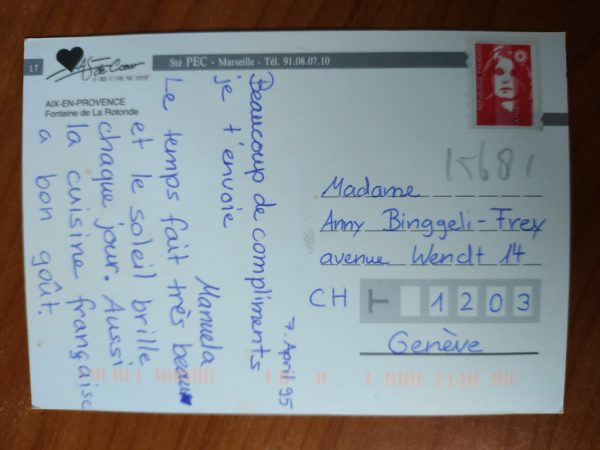 LT
AS de Cœur
Sté PEC - Marseille - Tél. 91.08.07.10
AIX-EN-PROVENCE
Fontaine de La Rotonde
7. April 95
Beaucoup de compliments
je t'envoie
Manuela
Le temps fait très beau
et le soleil brille
chaque jour. Aussi
la cuisine française
a bon goût.
15681
Madame
Anny Binggeli-Frey
avenue Wendt 14
CH 1203
Genève